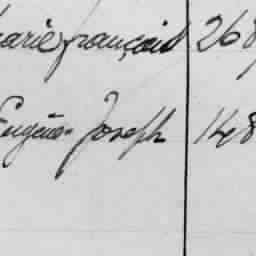 Marie françoise 268
Eugène Joseph 148